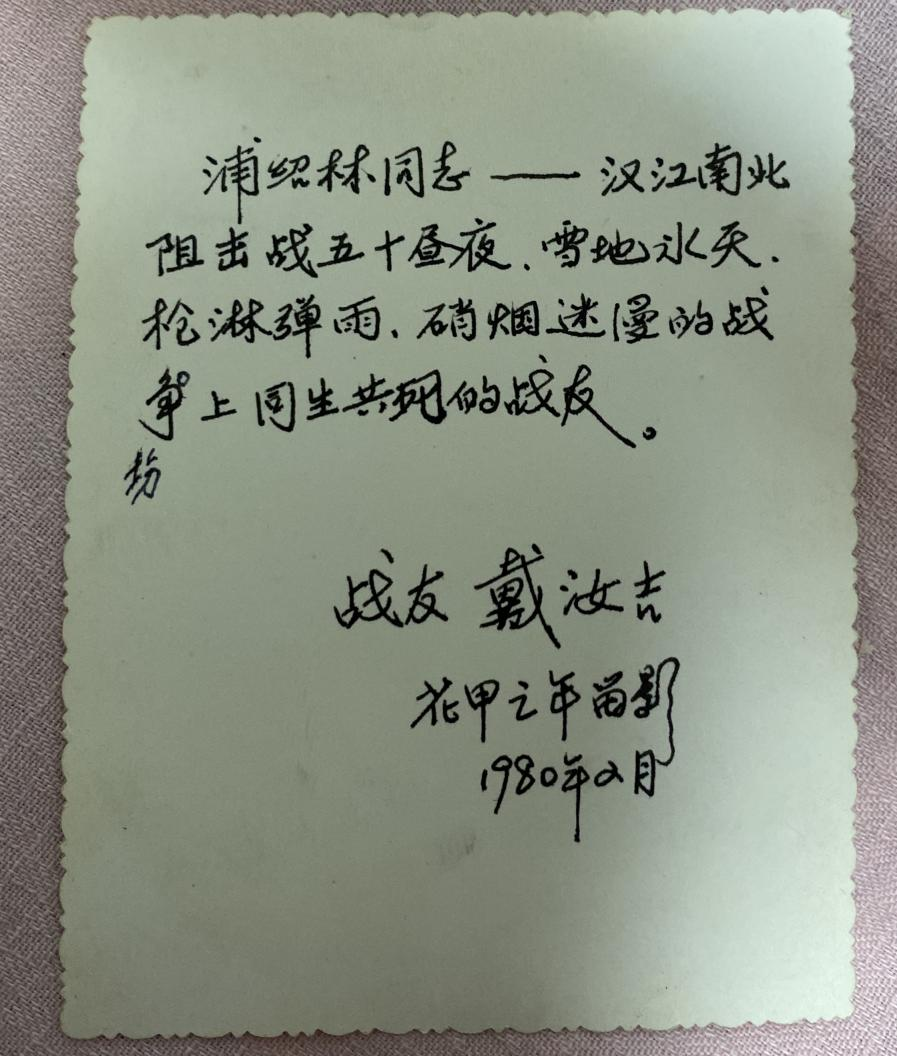 浦绍林同志——汉江南北
阻击战五十昼夜、雪地冰天、
枪淋弹雨、硝烟迷漫的战
争上同生共死的战友。
场
战友 戴汝吉
花甲之年留影
1980年2月